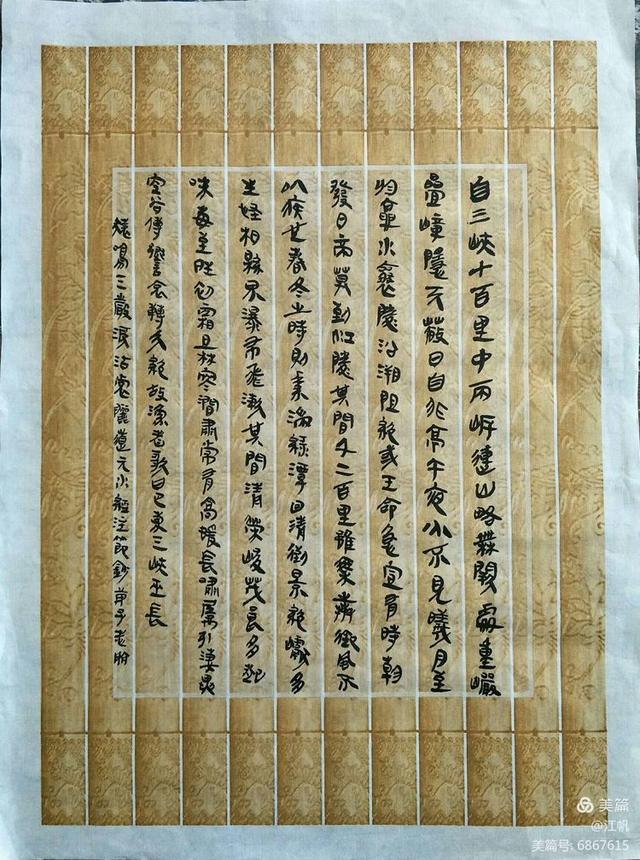 自三峽七百里中兩岸連山略無闕處重巖
疊嶂隱天蔽日自非亭午夜分不見曦月至
於夏水襄陵沿溯阻絕或王命急宣有時朝
發白帝莫到江陵其間千二百里雖乘奔御風不
以疾也春冬之時則素湍綠潭回清倒景絕巘多
生怪柏懸泉瀑布飛漱其間清榮峻茂良多趣
味每至晴初霜旦林寒澗肅常有高猿長嘯屬引淒異
空谷傳響哀轉久絕故漁者歌曰巴東三峽巫長
猿鳴三聲淚沾裳酈道元水經注節鈔弟子老
美篇
@江帆
美篇号: 6867615